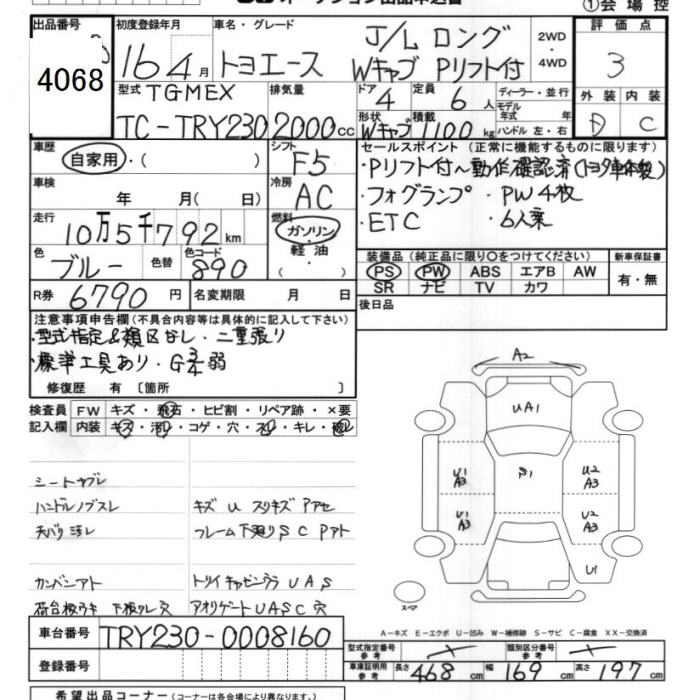 オークション出品申込書
①会場控
出品番号
4068
初度登録年月
16 4月
車名・グレード
トヨエース
J/L ロング
Wキャブ Pリフト付
2WD
・
4WD
評価点
3
外装 内装
D C
型式 TGMEX
TC-TRY230
排気量
2000cc
ドア
4
定員
6人
ディーラー・並行
モデル
年式 年
形状
Wキャブ
積載
1100kg
ハンドル 左・右
車歴
自家用・( )
シフト
F5
車検
年 月( 日)
冷房
AC
走行
10万5千792km
燃料
ガソリン
・
軽油
色
ブルー
色替
色コード
890
R券 6790円
名変期限 月 日
セールスポイント (正常に機能するものに限ります)
・Pリフト付~動作確認済(トヨタ車体製)
・フォグランプ ・PW4枚
・ETC ・6人乗
装備品 (純正品に限り○をつけてください)
PS PW ABS エアB AW
SR ナビ TV カワ
新車保証書
有・無
後日品
注意事項申告欄(不具合内容等は具体的に記入して下さい)
・型式指定&類区なし・二重張り
・標準工具あり・G3/4弱
修復歴 有 〔箇所 〕
検査員
記入欄
FW キズ・飛石・ヒビ割・リペア跡・×要
内装 キズ・汚レ・コゲ・穴・スレ・キレ・破レ
シートヤブレ
ハンドルノブスレ
天バリ汚レ
キズ U スリキズ アアセ
フレーム下廻り S C Pアト
カンバンアト
荷台板ウキ 下板ワレ 穴
トリイ キャビンウラ U A S
アオリゲート U A S C 穴
A2
UA1
U1
A3
S1
U2
A3
U1
A3
U2
A3
U1
スペア
A-キズ E-エクボ U-凹み W-補修跡 S-サビ C-腐食 XX-交換済
車台番号 TRY230-0008160
登録番号
型式指定番号
参考
類別区分番号
参考
車庫証明用
参考
長さ 468cm 幅 169cm 高さ 197cm
希望出品コーナー (コーナーは各会場により異なります。)